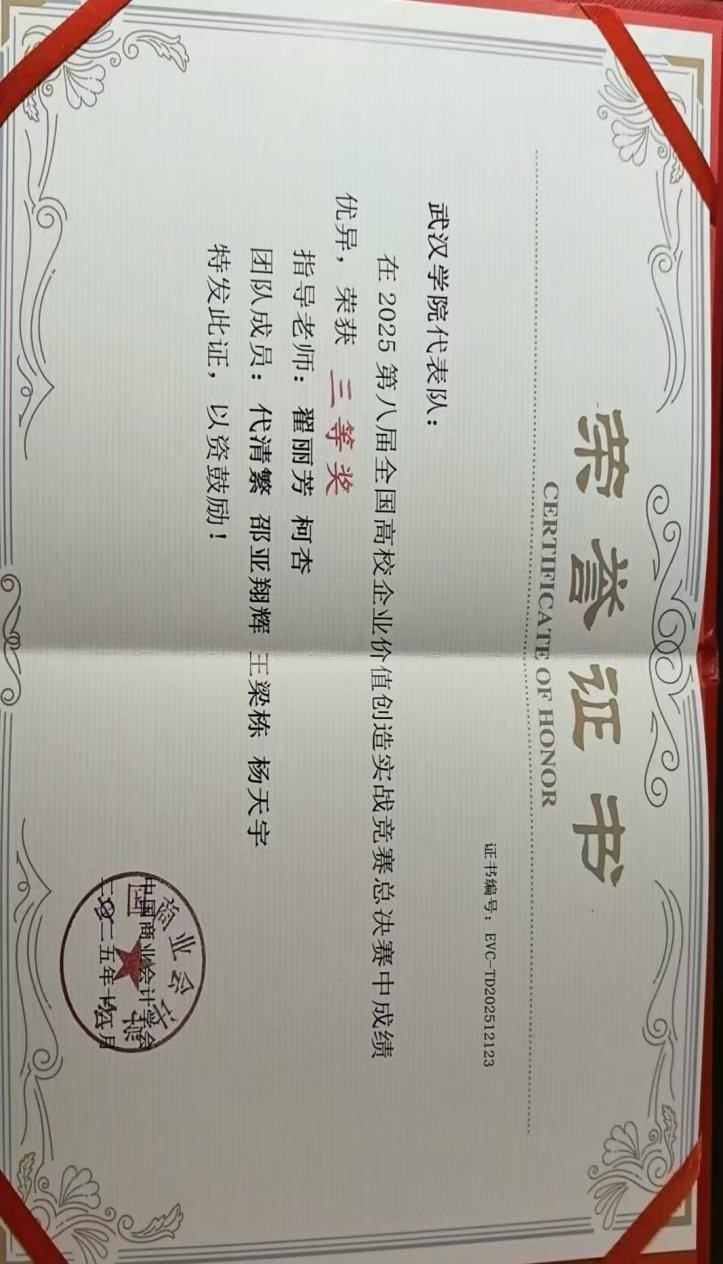 荣誉证书
CERTIFICATE OF HONOR
证书编号：EVC-TD202512123
武汉学院代表队：
在 2025 第八届全国高校企业价值创造实战竞赛总决赛中成绩
优异，荣获 三等奖
指导老师：翟丽芳 柯杏
团队成员：代清繁 邵亚翔辉 王梁栋 杨天宇
特发此证，以资鼓励！
中国商业会计学会
二〇二五年十二月